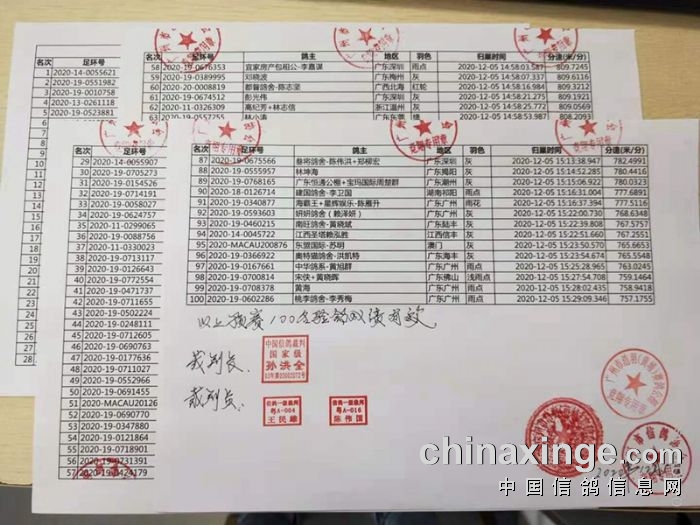 名次 足环号
1 2020-14-0055621
2 2020-19-0551982
3 2020-19-0010758
4 2020-13-0261118
5 2020-19-0523881
名次 足环号 鸽主 地区 羽色 归巢时间 分速(米/分)
58 2020-19-0676353 宜家房产包租公-李嘉谋 广东深圳 雨点 2020-12-05 14:58:03.587 809.7245
59 2020-19-0389995 邓晓波 广东梅州 灰 2020-12-05 14:58:07.377 809.6116
60 2020-20-0008819 都督鸽舍-陈志坚 广西北海 红轮 2020-12-05 14:58:16.984 809.3212
61 2020-19-0674512 彭光伟 广东深圳 灰 2020-12-05 14:58:21.265 809.1921
62 2020-11-0326309 高纪芳+林志信 浙江温州 灰 2020-12-05 14:58:25.772 809.0569
63 2020-19-0557255 林小涛 广东东莞 绛 2020-12-05 14:58:53.987 808.2093
名次 足环号
29 2020-14-0055907
30 2020-19-0705273
31 2020-19-0154526
32 2020-19-0714191
33 2020-19-0058027
34 2020-19-0624757
35 2020-11-0299065
36 2020-19-0088756
37 2020-11-0330023
38 2020-19-0713117
39 2020-19-0126643
40 2020-19-0772554
41 2020-19-0471737
42 2020-19-0711655
43 2020-19-0502224
44 2020-19-0248111
45 2020-19-0712605
46 2020-19-0690763
47 2020-19-0177636
48 2020-19-0711027
49 2020-19-0552966
50 2020-19-0691455
51 2020-MACAU20126
52 2020-19-0690770
53 2020-19-0347880
54 2020-19-0121864
55 2020-19-0718901
56 2020-19-0731391
57 2020-19-0424179
名次 足环号 鸽主 地区 羽色 归巢时间 分速(米/分)
87 2020-19-0675566 叁将鸽舍-陈伟洪+郑柳宏 广东深圳 雨点 2020-12-05 15:13:38.947 782.4991
88 2020-19-0555957 林坤海 广东揭阳 灰 2020-12-05 15:14:52.285 780.4416
89 2020-19-0768165 广东恒通公棚+宝玛国际周楚群 广东潮州 灰 2020-12-05 15:15:06.922 780.0323
90 2020-18-0126714 建国鸽舍-李卫国 湖南祁阳 雨点 2020-12-05 15:16:31.004 777.6891
91 2020-19-0340877 海霸王+星辉娱乐-陈雁升 广东广州 雨花 2020-12-05 15:16:37.394 777.5116
92 2020-19-0593603 妍妍鸽舍（赖泽妍） 广东广州 灰 2020-12-05 15:22:00.730 768.6348
93 2020-19-0460215 南旺鸽舍-黄晓斌 广东陆丰 灰 2020-12-05 15:22:39.808 767.5757
94 2020-14-0045722 江西圣塔赖泓胜 江西信丰 灰 2020-12-05 15:22:51.660 767.2551
95 2020-MACAU200876 东盟国际-苏明 澳门 灰 2020-12-05 15:23:50.570 765.6653
96 2020-19-0366922 奥特猫鸽舍-洪凯特 广东海丰 灰 2020-12-05 15:23:54.679 765.5546
97 2020-19-0167661 中华鸽系-黄旭群 广东广州 雨点 2020-12-05 15:25:28.965 763.0245
98 2020-19-0700814 宋侠+黄晓晖 广东佛山 浅雨点 2020-12-05 15:27:54.708 759.1464
99 2020-19-0708378 黄海 广东广州 雨点 2020-12-05 15:28:02.435 758.9418
100 2020-19-0602286 桃李鸽舍-李秀梅 广东广州 雨点 2020-12-05 15:29:09.346 757.1755
以上预赛100名验鸽成绩有效
裁判长
中国信鸽裁判
国家级
孙洪全
裁判员
信鸽一级裁判
粤A-004
王民雄
信鸽一级裁判
粤A-016
陈伟国
chinaxinge.com
中国信鸽信息网